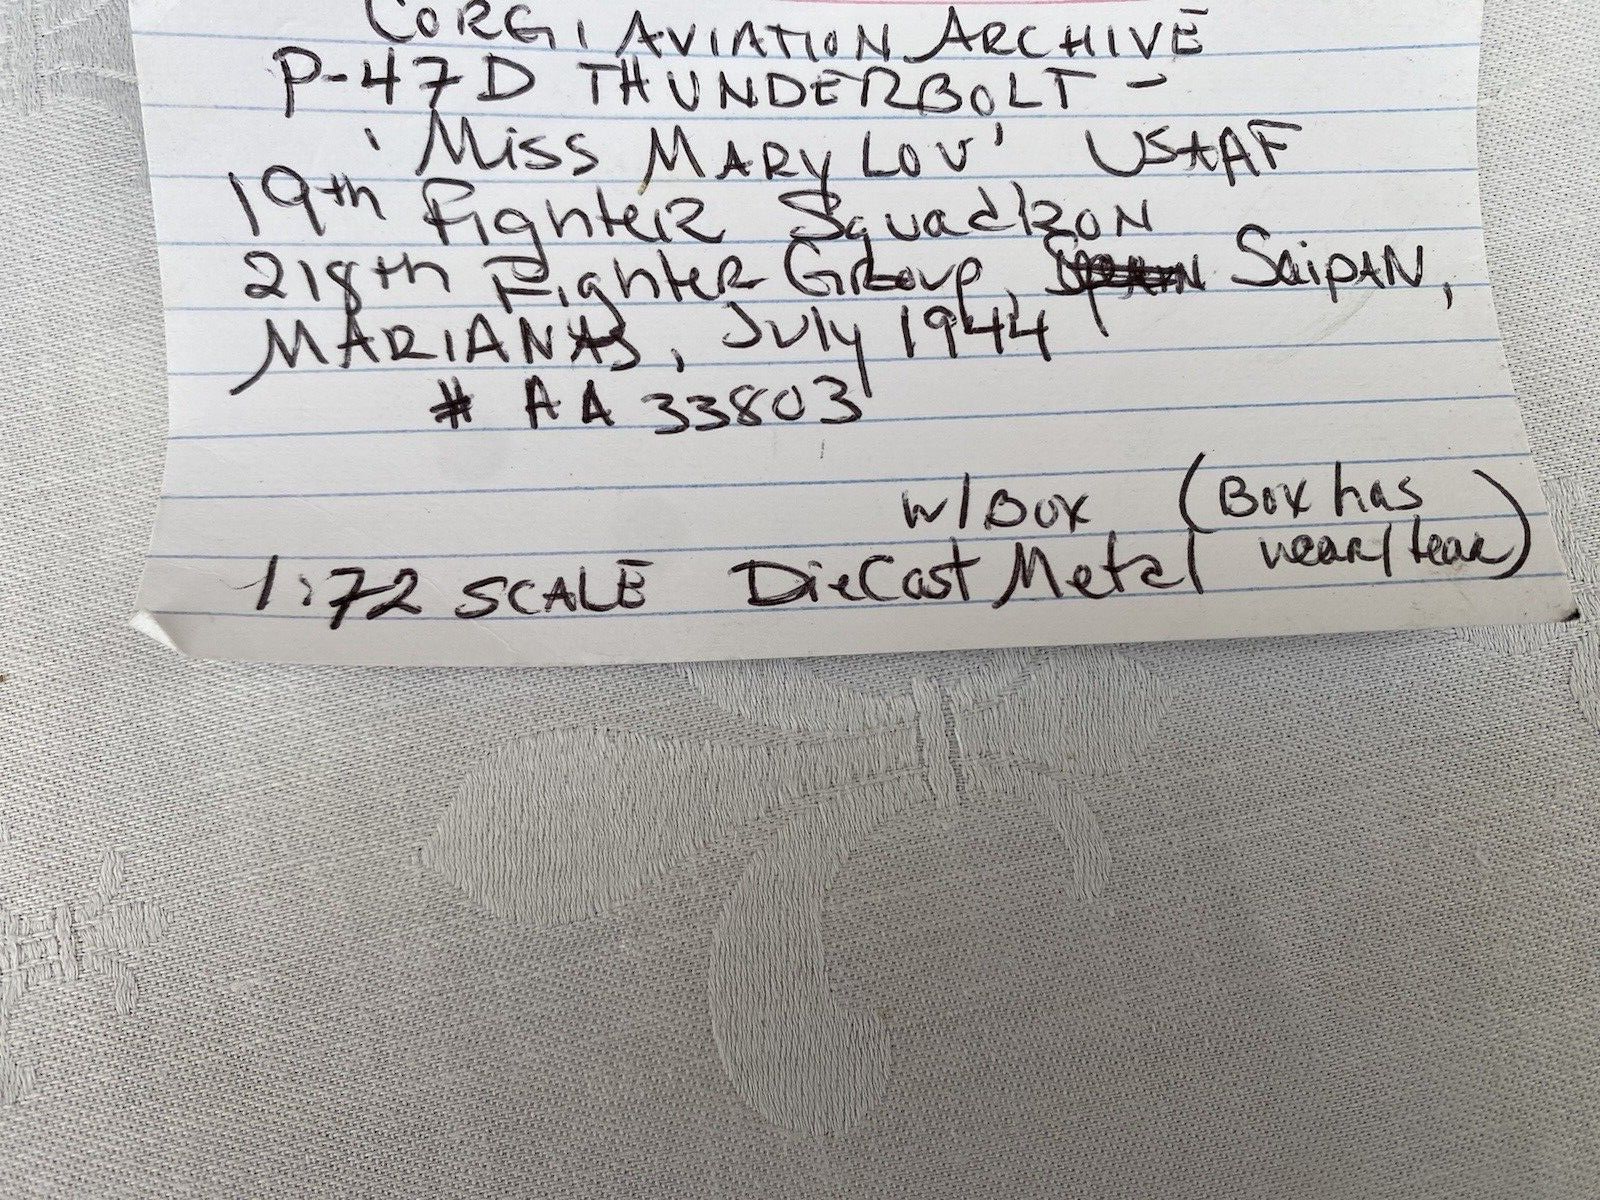 CORGI AVIATION ARCHIVE
P-47D THUNDERBOLT -
'Miss MARY LOU' USAAF
19th Fighter Squadron
218th Fighter Group, Saipan,
MARIANAS, July 1944
# AA 33803
w/Box (Box has
wear/tear)
1:72 SCALE DieCast Metal